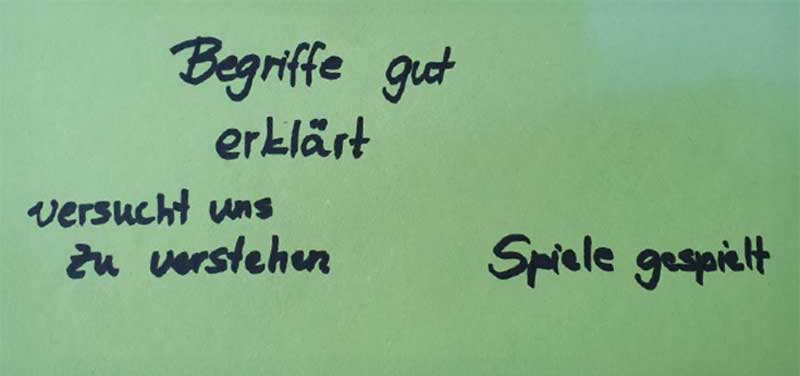 Begriffe gut
erklärt
versucht uns
zu verstehen
Spiele gespielt